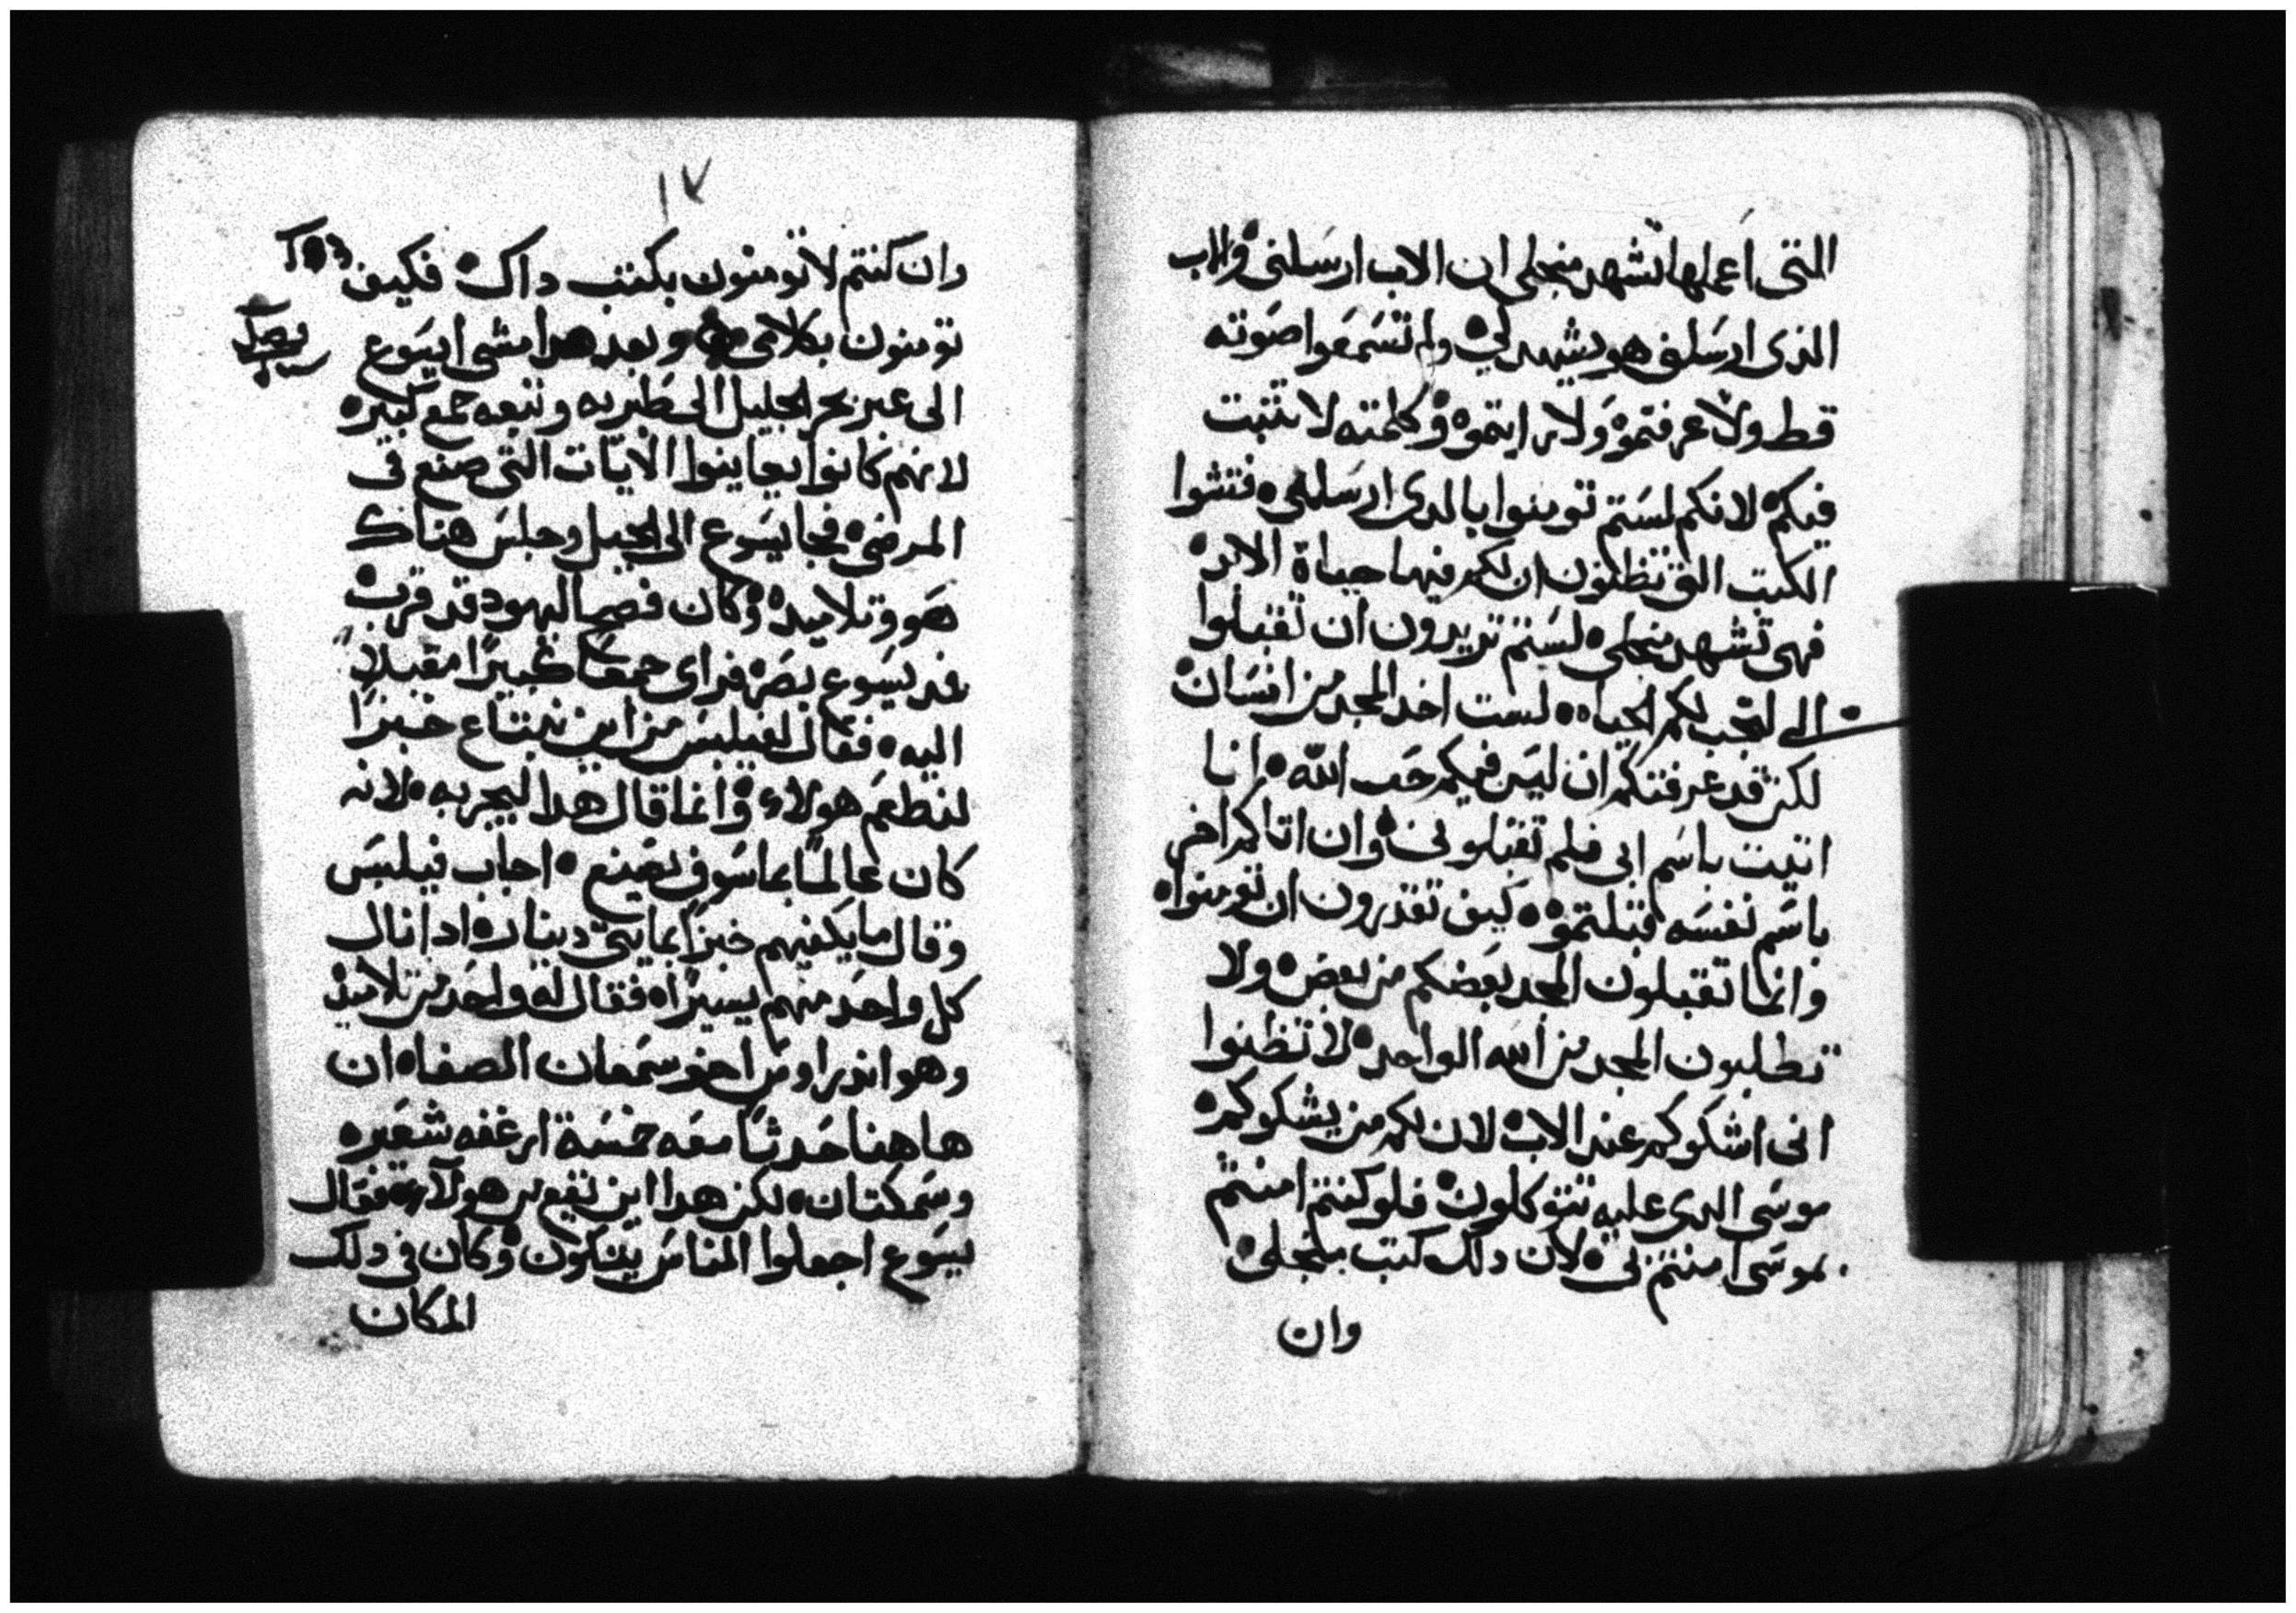 التى اعملها تشهد منجلى ان الاب ارسلنى والاب
الذى ارسلنى هو يشهد لي ولم تسمعوا صوته
قط ولا عرفتموه ولا رايتموه وكلمته لا تثبت
فيكم لانكم لستم تومنوا بالدى ارسلنى فتشوا
الكتب التى تظنون ان لكم فيها حياة الابد
فهى تشهد منجلى لستم تريدون ان تقبلوا
الى لتجب لكم الحياه لست اخد المجد من انسان
لكن قد عرفتكم ان ليس فيكم حب الله انا
اتيت باسم ابى فلم تقبلونى وان اتاكم اخر
باسم نفسه قبلتموه كيف تقدرون ان تومنوا
وانما تقبلون المجد بعضكم من بعض ولا
تطلبون المجد من الله الواحد لا تظنوا
انى اشكوكم عند الاب لان لكم من يشكوكم
موسى الدى عليه تتوكلون فلو كنتم امنتم
بموسى امنتم بى لان دلك كتب منجلى
وان
١٧
وان كنتم لا تومنون بكتب داك فكيف
تومنون بكلامى وبعد هدا مشى ايسوع
الى عبر بحر الجليل الى طبريه وتبعه جمع كبير
لانهم كانوا يعاينوا الايات التى صنع فى
المرضى فجا يسوع الى الجبل وجلس هناك
هو وتلاميده وكان فصح اليهود قد قرب
فمد يسوع بصره فراى جمعا كبيرا مقبلا
اليه فقال لفيلبس من اين نبتاع خبزا
لنطعم هولاء وانما قال هدا ليجربه لانه
كان عالما بما سوف يصنع اجاب فيلبس
وقال ما يكفيهم خبزا بمايتى دينار ادا نال
كل واحد منهم يسيرا فقال له واحد من تلاميذ
وهو اندراوس اخو سمعان الصفا ان
هاهنا حدثا معه خمسة ارغفه شعير
وسمكتان لكن هدا اين يقع من هولاء فقال
يسوع اجعلوا الناس يتكون وكان فى دلك
المكان